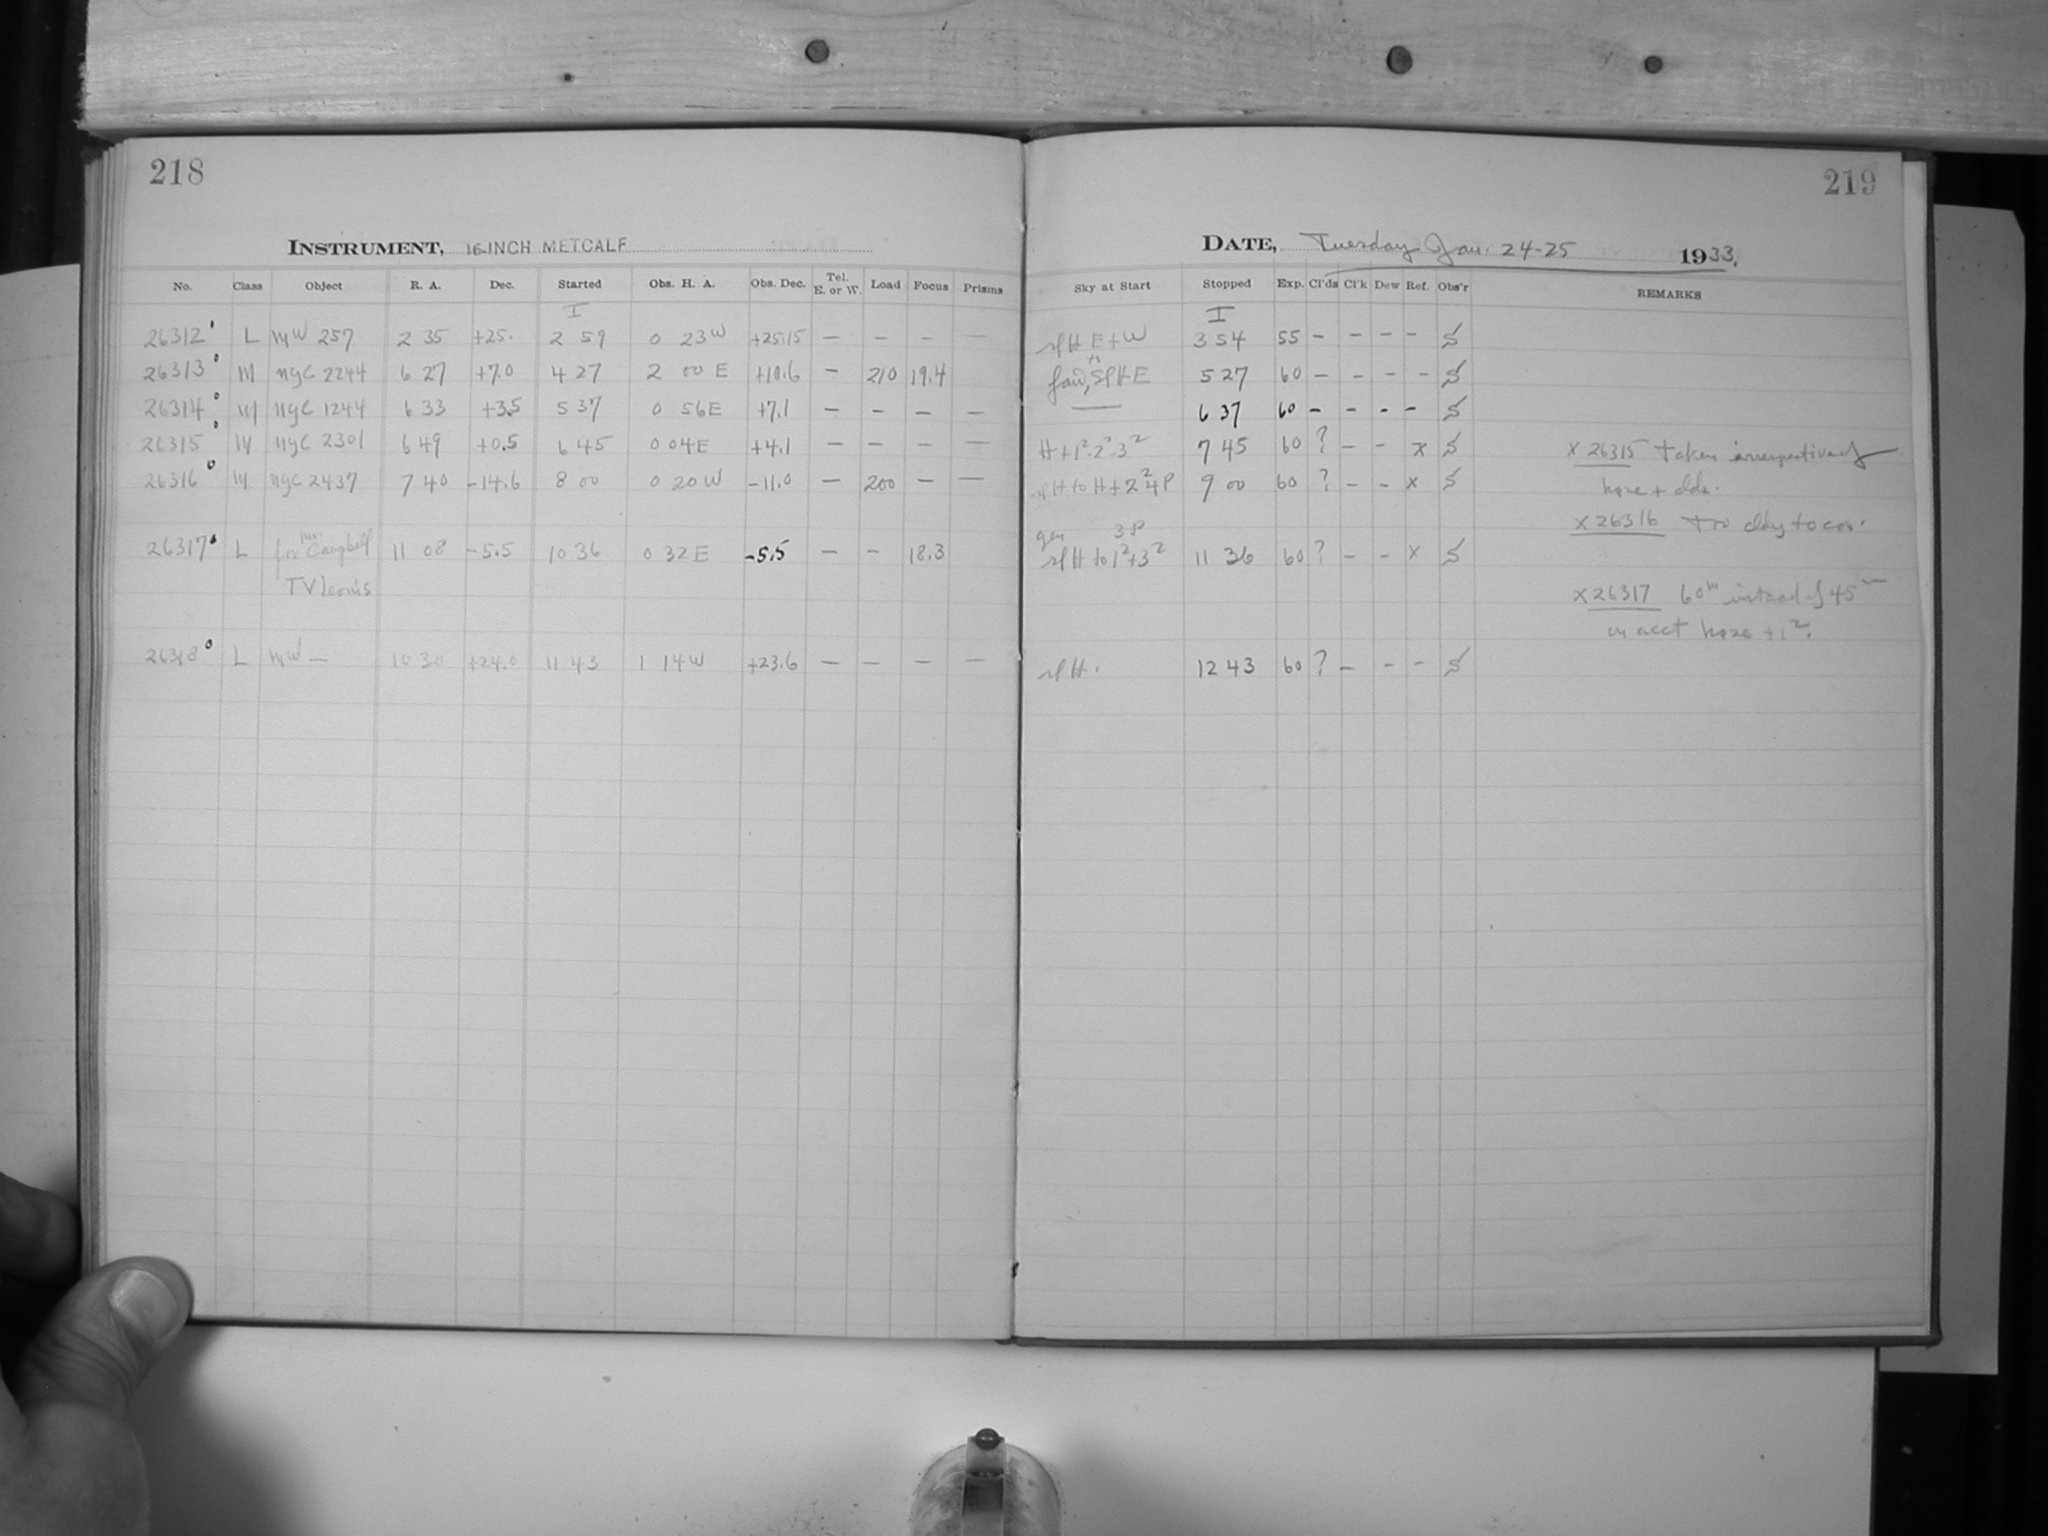 218
INSTRUMENT, 16-INCH METCALF
No. Class Object R. A. Dec. Started Obs. H. A. Obs. Dec. Tel. E. or W. Load Focus Prisms
I
26312 L MW 257 2 35 +25. 2 59 0 23 W +25.15 — — — —
26313 M NGC 2244 6 27 +7.0 4 27 2 00 E +10.6 — 210 19.4
26314 M NGC 1244 6 33 +3.5 5 37 0 56 E +7.1 — — — —
26315 M NGC 2301 6 49 +0.5 6 45 0 04 E +4.1 — — — —
26316 M NGC 2437 7 40 -14.6 8 00 0 20 W -11.0 — 200 — —
26317 L for Campbell 11 08 -5.5 10 36 0 32 E -5.5 — — 18.3
TV Leonis
26318 L MW — 10 30 +24.0 11 43 1 14 W +23.6 — — — —
219
DATE, Tuesday Jan. 24-25 1933.
Sky at Start Stopped Exp. Cl'ds Cl'k Dew Ref. Obs'r REMARKS
I
slH E + W 3 54 55 — — — — S
5 27 60 — — — — S
— 6 37 60 — — — — S
H + 1²-2²-3² 7 45 60 ? — — x S
slH to H + 2²4P 9 00 60 ? — — x S
gen 3P
slH to 1²+3² 11 36 60 ? — — x S
slH. 12 43 60 ? — — — S
x 26315 Taken irrespective of
haze + clds.
x 26316 Too cldy to con.
x 26317 60ᵐ instead of 45ᵐ
on acct haze + 1².